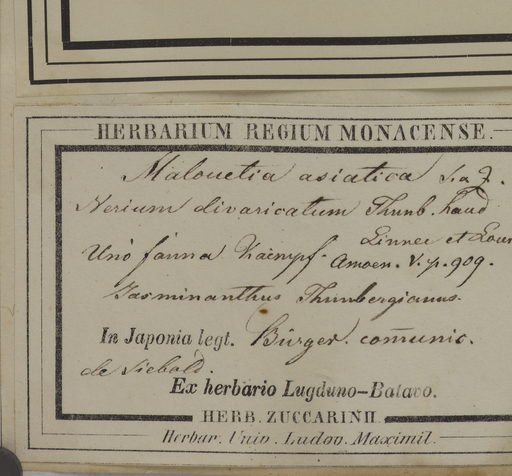 HERBARIUM REGIUM MONACENSE.
Malouetia asiatica S. a Z.
Nerium divaricatum Thunb. haud
Linnee et Lour
Unò fánna Kaimpf. Amoen. V. p. 909.
Jasminanthus Thunbergianus.
In Japonia legt. Bürger. com̄unic.
de Siebold.
Ex herbario Lugduno-Batavo.
HERB. ZUCCARINII.
Herbar. Univ. Ludov. Maximil.